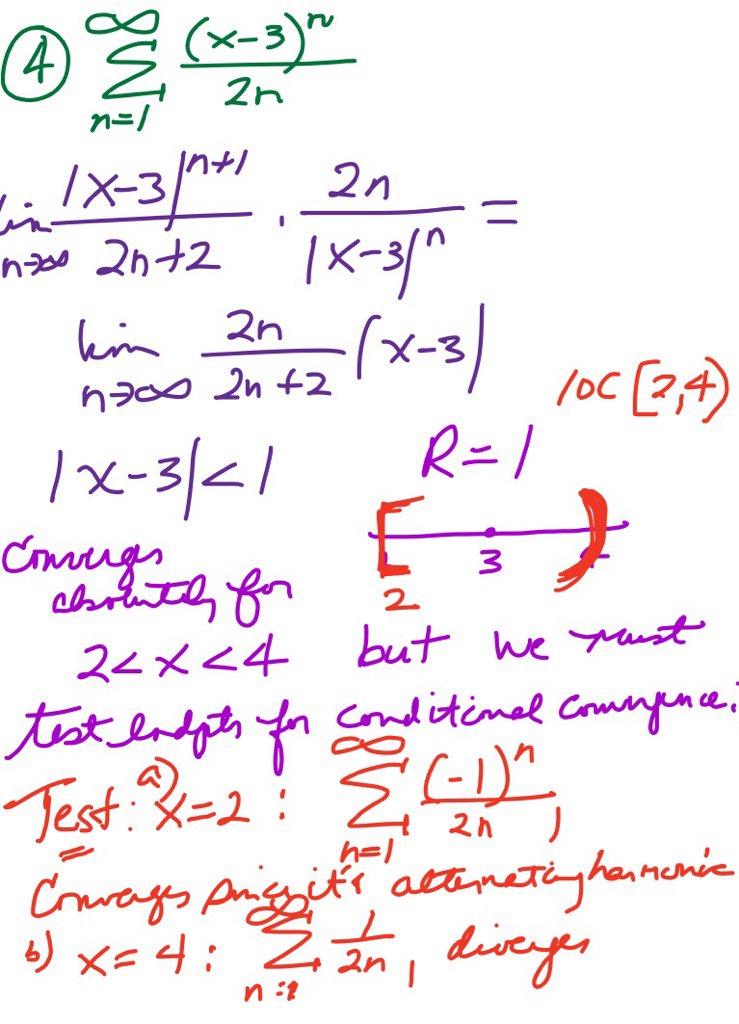 ④ ∞ Σ n=1 (x-3)^n / 2n
lim n→∞ |x-3|^(n+1) / 2n+2 · 2n / |x-3|^n =
lim n→∞ 2n / 2n+2 |x-3|
IOC [2,4)
|x-3| < 1 R = 1
Converges
absolutely for
[ 3 )
2 4
2 < x < 4 but we must
test endpts for conditional convergence.
Test: a) x=2 : ∞ Σ n=1 (-1)^n / 2n ,
Converges since it's alternating harmonic
b) x = 4 : ∞ Σ n=1 1 / 2n , diverges